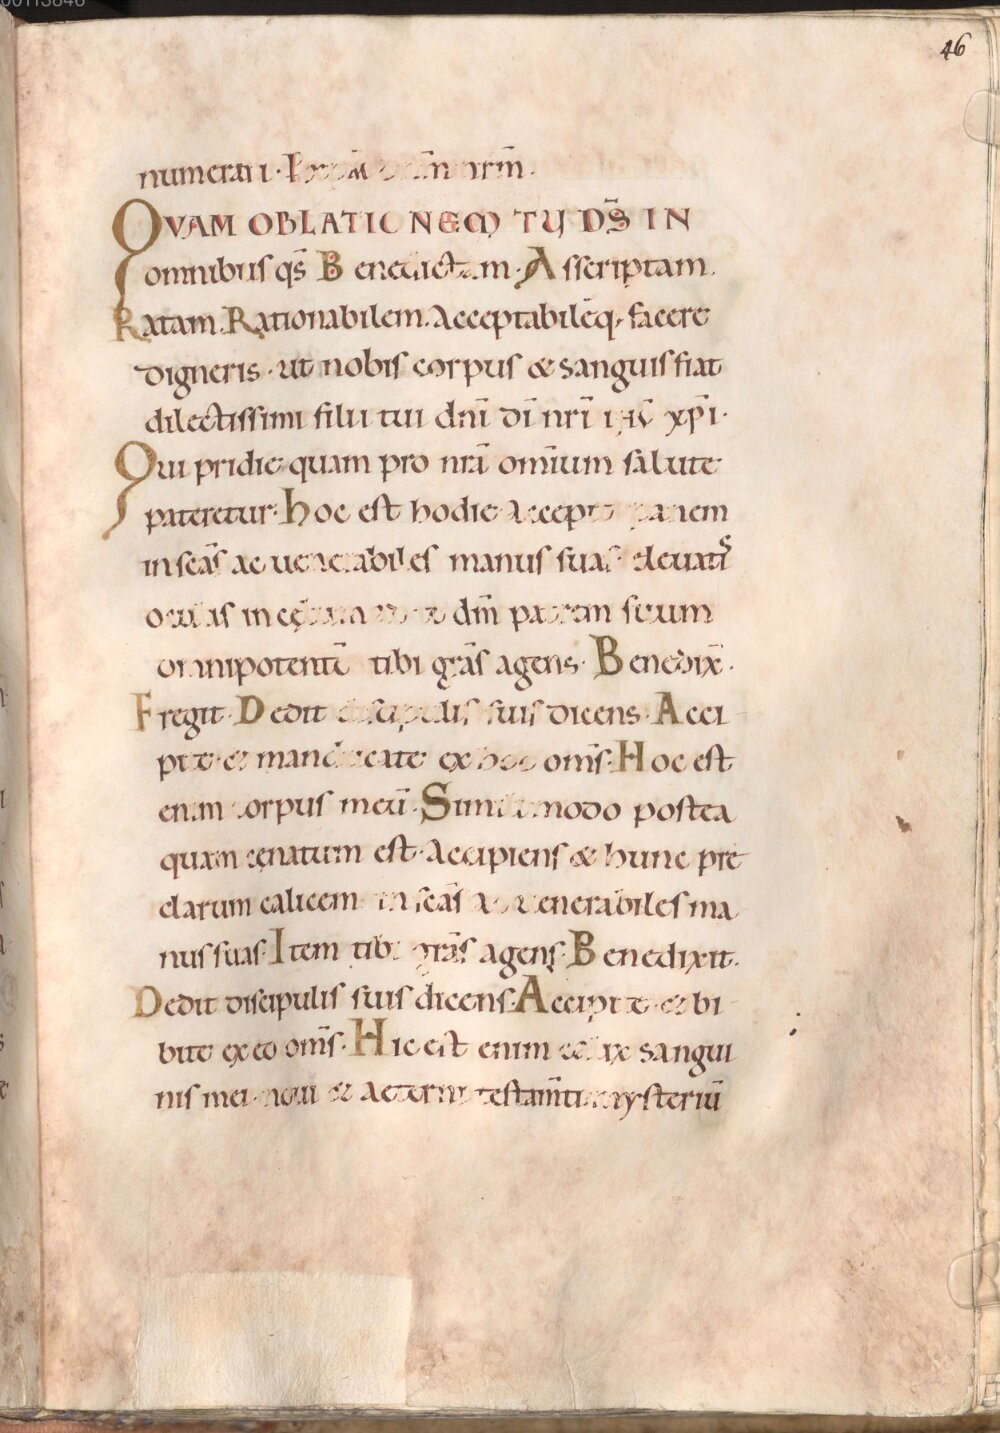 46
numerari. P xp̄m dn̄m nr̄m.
QVAM OBLATIONEM TU DS̄ IN
omnibus qs̄ Benedictam. Asscriptam.
Ratam. Rationabilem. acceptabilēq, facere
digneris. ut nobis corpus & sanguis fiat
dilectissimi filii tui dn̄i dī nr̄i ihū xp̄i.
Qui pridie quam pro nrā omīum salute
pateretur. hoc est hodie accepit panem
in scās ac uenerabiles manus suas. eleuatis
oculis in cęlum dm̄ patrem suum
omnipotentē tibi grās agens. Benedix̄.
Fregit. Dedit discipulis suis dicens. Acci
pite. & manducate ex hoc om̄s. Hoc est
enim corpus meū. Simili modo postea
quam cęnatum est. Accipiens & hunc pre
clarum calicem in scās ac uenerabiles ma
nus suas. Item tibi grās agens. Benedixit.
Dedit discipulis suis dicens. Accipite. & bi
bite ex eo om̄s. Hic est enim calix sangui
nis mei. noui & aeterni testam̄ti. mysteriū